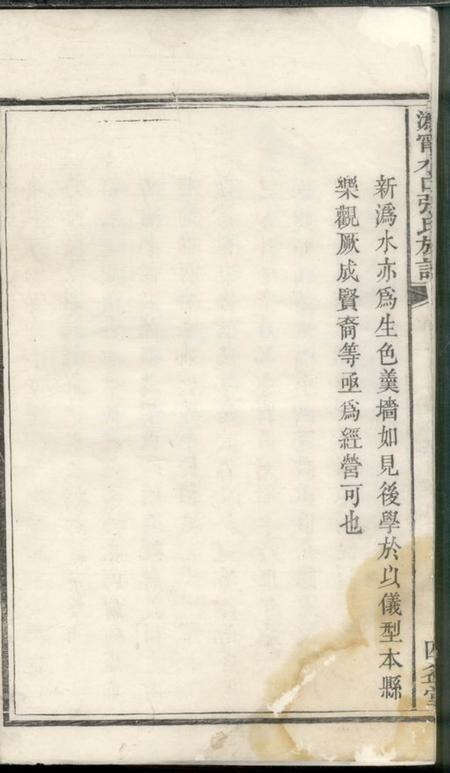 新溈水亦爲生色羹墻如見後學於以儀型本縣
樂觀厥成賢裔等亟爲經營可也
張氏族譜